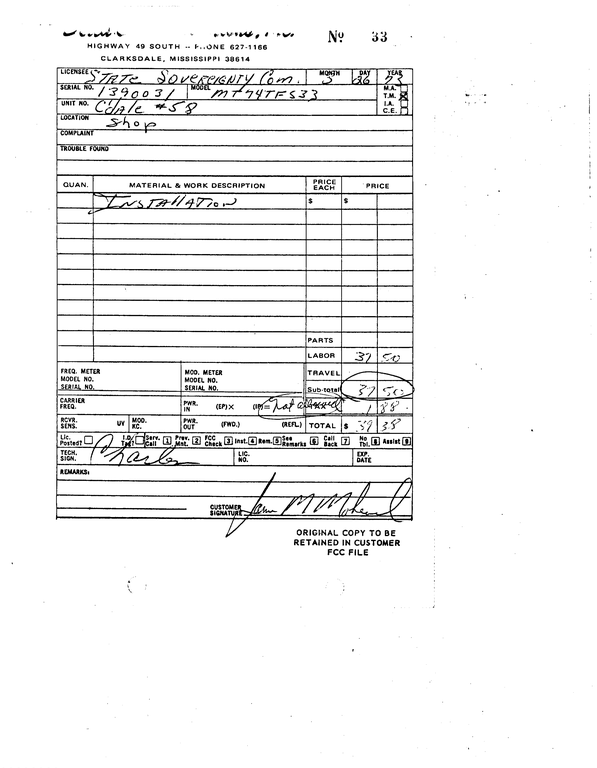 Nº 33
HIGHWAY 49 SOUTH -- PHONE 627-1166
CLARKSDALE, MISSISSIPPI 38614
LICENSEE State Sovereignty Com. MONTH 3 DAY 26 YEAR 73
SERIAL NO. 1390031 MODEL MT74TFS33 M.A.
T.M.
UNIT NO. C'dale #58 I.A.
C.E.
LOCATION Shop
COMPLAINT
TROUBLE FOUND
QUAN. MATERIAL & WORK DESCRIPTION PRICE EACH PRICE
Installation $ $
PARTS
LABOR 37 50
FREQ. METER MOD. METER TRAVEL
MODEL NO. MODEL NO.
SERIAL NO. SERIAL NO. Sub-total 37 50
CARRIER FREQ. PWR. IN (EP) X (IP)= Not allowed 1 88
RCVR. SENS. UV MOD. KC. PWR. OUT (FWD.) (REFL.) TOTAL $ 39 38
Lic. Posted? I.D. Tag? Serv. Call 1 Prev. Mnt. 2 FCC Check 3 Inst. 4 Rem. 5 See Remarks 6 Call Back 7 No Tbl. 8 Assist 9
TECH. SIGN. Charles LIC. NO. EXP. DATE
REMARKS:
CUSTOMER SIGNATURE
ORIGINAL COPY TO BE
RETAINED IN CUSTOMER
FCC FILE